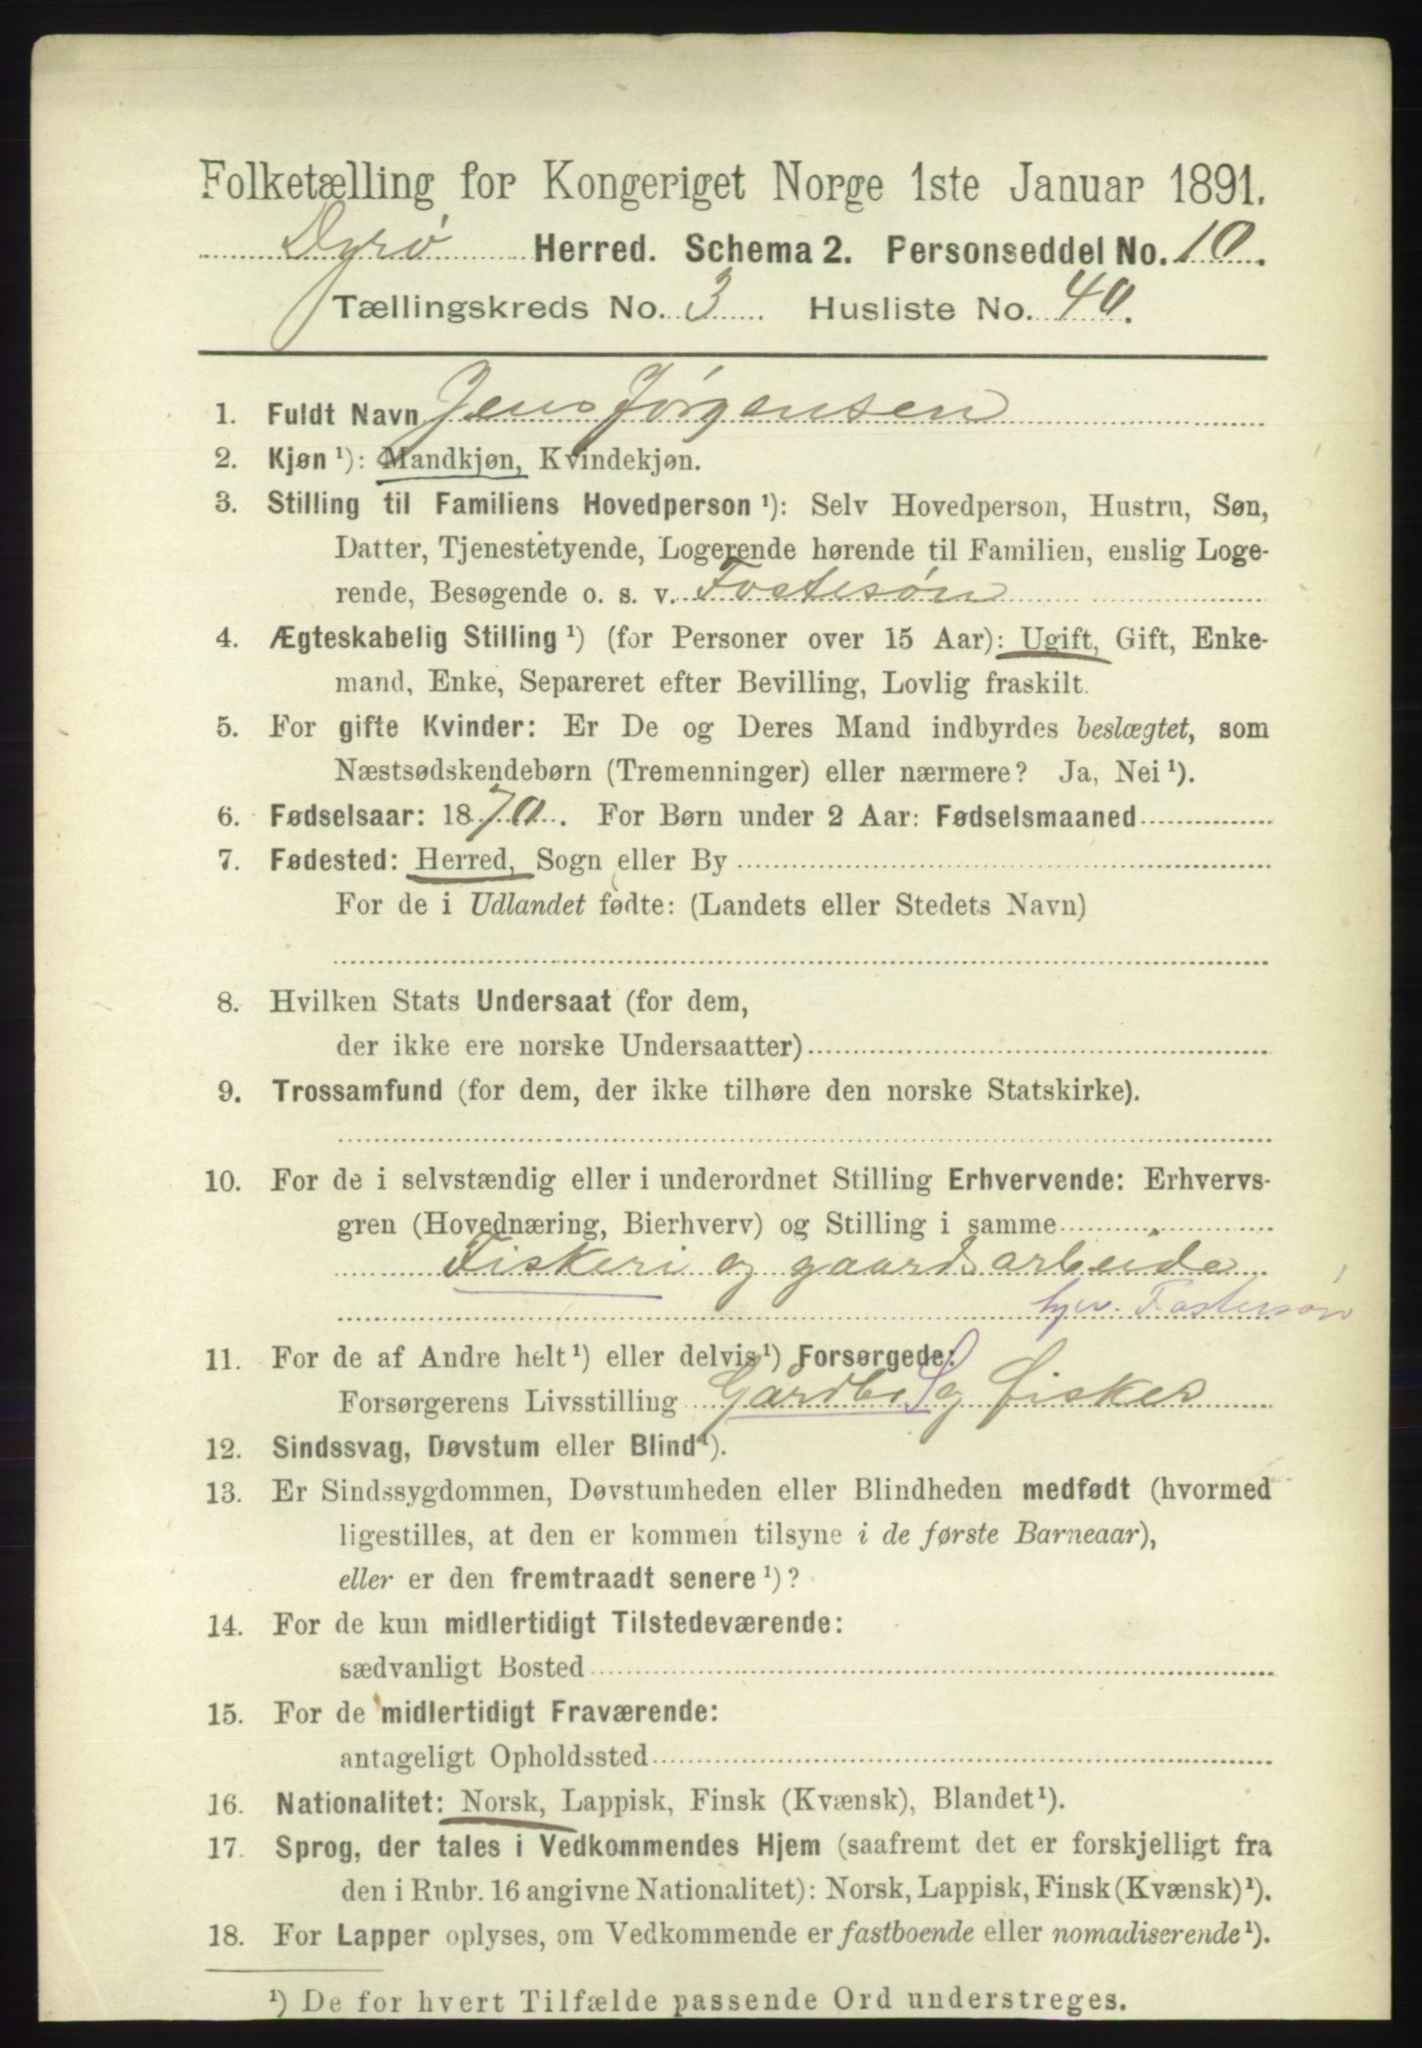 Folketælling for Kongeriget Norge 1ste Januar 1891.
Dyrø Herred. Schema 2. Personseddel No. 10.
Tællingskreds No. 3 Husliste No. 40.
1. Fuldt Navn Jens Jørgensen
2. Kjøn ¹): Mandkjøn, Kvindekjøn.
3. Stilling til Familiens Hovedperson ¹): Selv Hovedperson, Hustru, Søn,
Datter, Tjenestetyende, Logerende hørende til Familien, enslig Loge-
rende, Besøgende o. s. v. Fostesøn
4. Ægteskabelig Stilling ¹) (for Personer over 15 Aar): Ugift, Gift, Enke-
mand, Enke, Separeret efter Bevilling, Lovlig fraskilt.
5. For gifte Kvinder: Er De og Deres Mand indbyrdes beslægtet, som
Næstsødskendebørn (Tremenninger) eller nærmere? Ja, Nei ¹).
6. Fødselsaar: 1870. For Børn under 2 Aar: Fødselsmaaned
7. Fødested: Herred, Sogn eller By
For de i Udlandet fødte: (Landets eller Stedets Navn)
8. Hvilken Stats Undersaat (for dem,
der ikke ere norske Undersaatter)
9. Trossamfund (for dem, der ikke tilhøre den norske Statskirke).
10. For de i selvstændig eller i underordnet Stilling Erhvervende: Erhvervs-
gren (Hovednæring, Bierhverv) og Stilling i samme
Fiskeri og gaardsarbeide
hjv. Fostersøn
11. For de af Andre helt ¹) eller delvis ¹) Forsørgede:
Forsørgerens Livsstilling Gårdb. S og fisker
12. Sindssvag, Døvstum eller Blind ¹).
13. Er Sindssygdommen, Døvstumheden eller Blindheden medfødt (hvormed
ligestilles, at den er kommen tilsyne i de første Barneaar),
eller er den fremtraadt senere ¹)?
14. For de kun midlertidigt Tilstedeværende:
sædvanligt Bosted
15. For de midlertidigt Fraværende:
antageligt Opholdssted
16. Nationalitet: Norsk, Lappisk, Finsk (Kvænsk), Blandet ¹).
17. Sprog, der tales i Vedkommendes Hjem (saafremt det er forskjelligt fra
den i Rubr. 16 angivne Nationalitet): Norsk, Lappisk, Finsk (Kvænsk) ¹).
18. For Lapper oplyses, om Vedkommende er fastboende eller nomadiserende ¹).
¹) De for hvert Tilfælde passende Ord understreges.